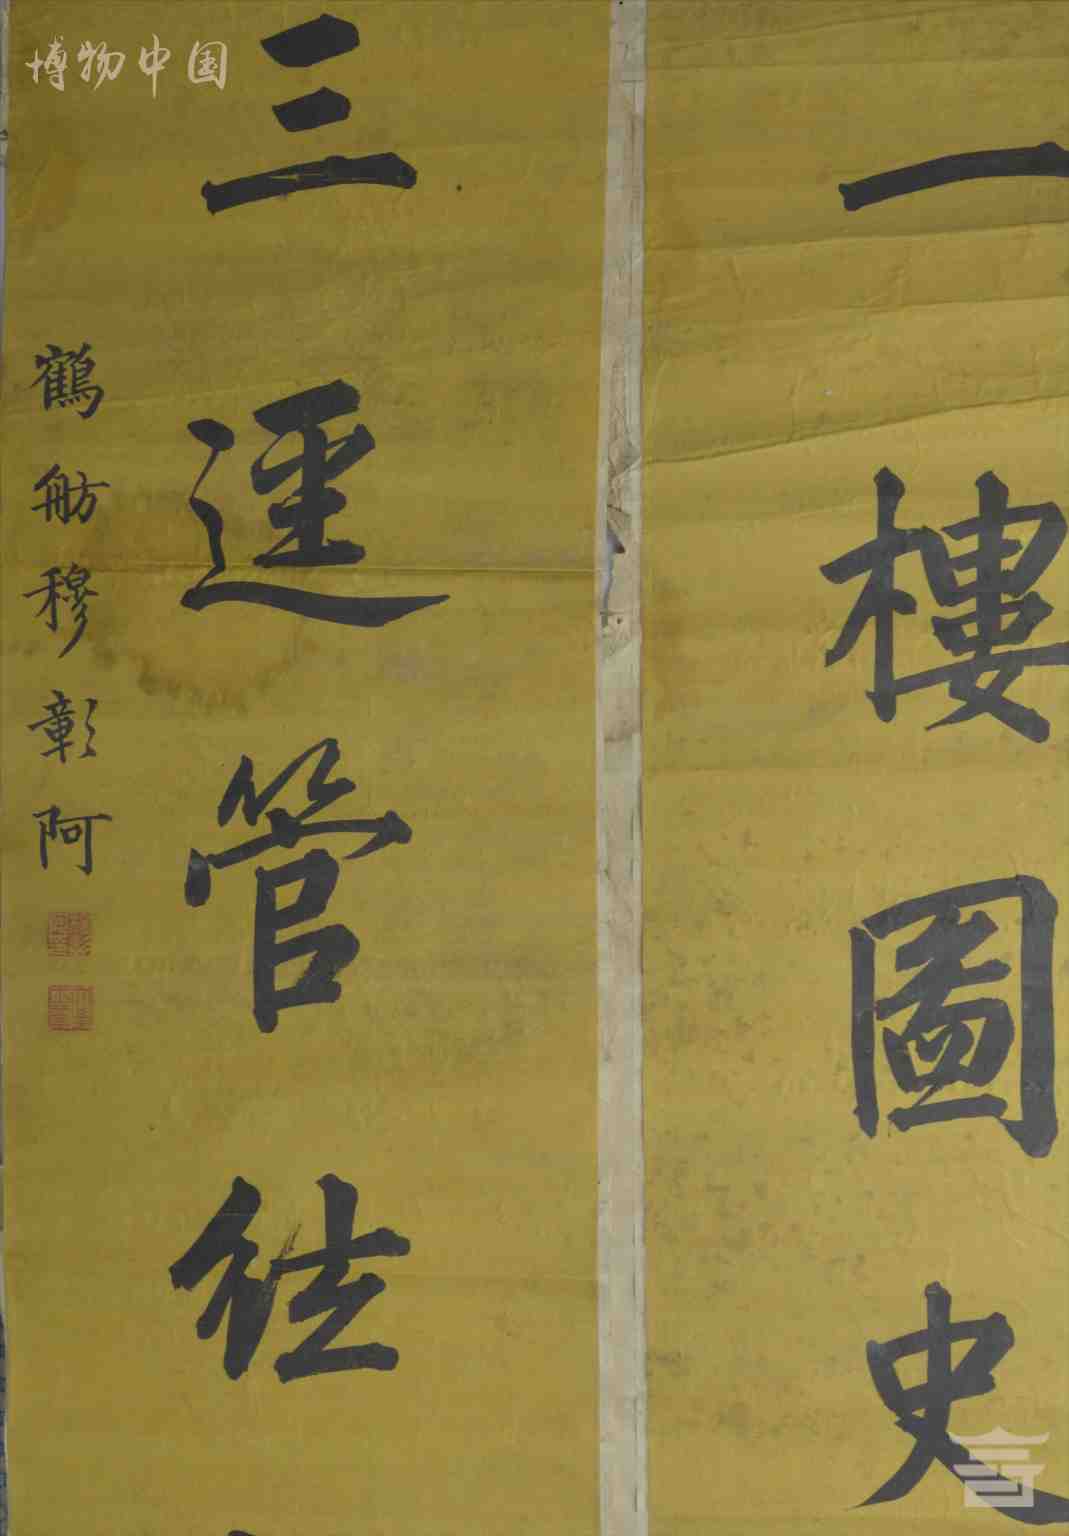 博物中国
一樓圖史
三逕管
鶴舫穆彰阿